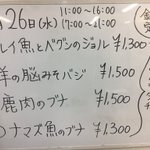 月26日(水) 11:00〜16:00
17:00〜21:00
レイ魚とベグンのジョル ¥1,300
羊の脳みそバジ ¥1,500
鹿肉のブナ ¥1,500
ナマズ魚のブナ ¥1,300